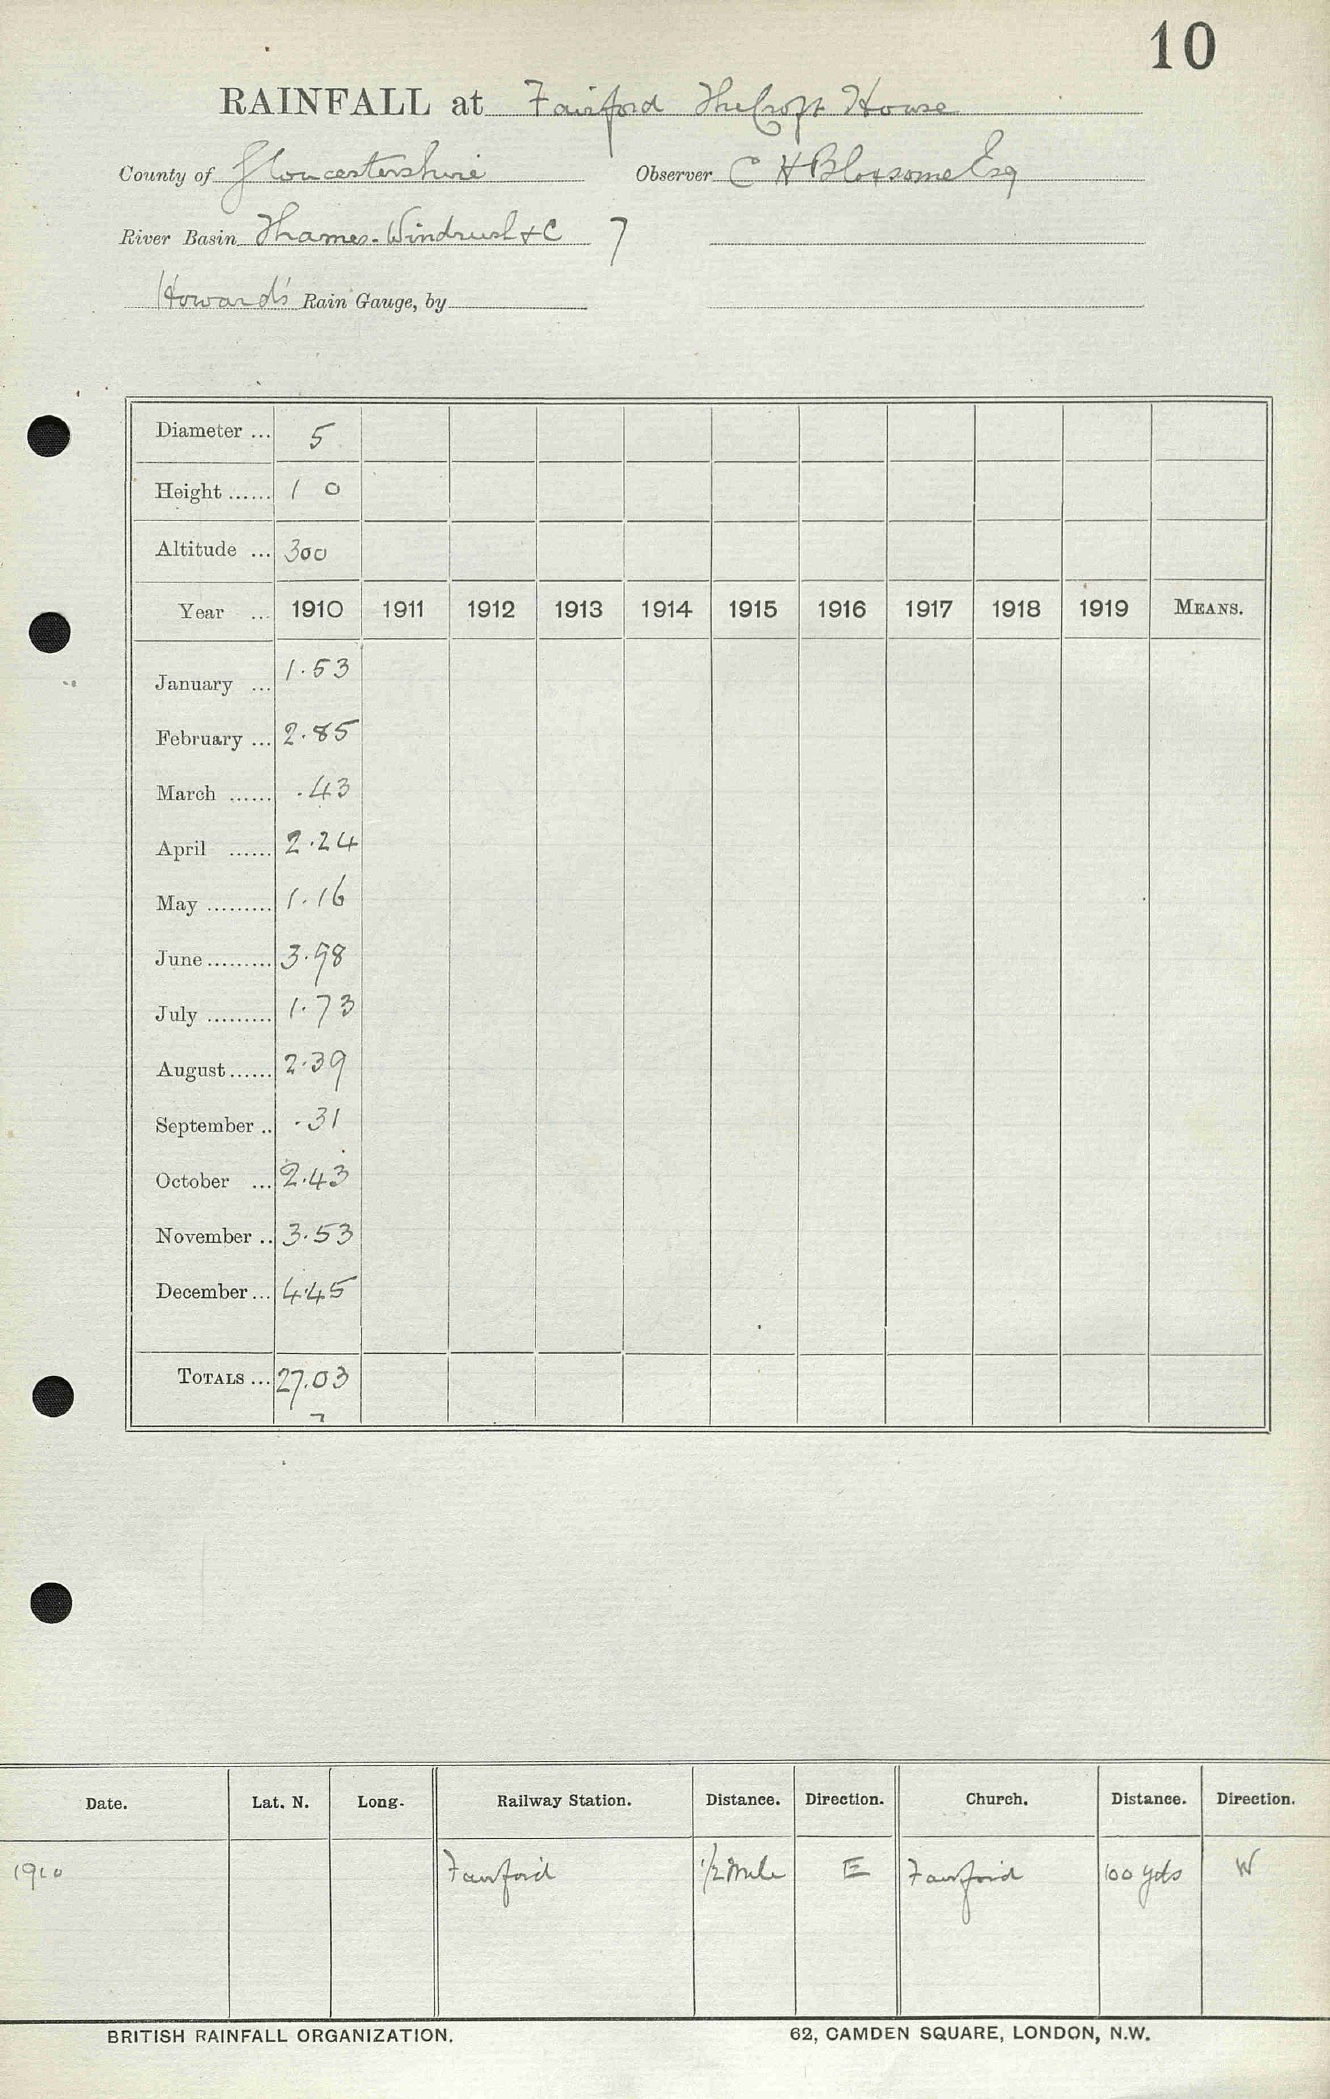 10
RAINFALL at Fairford The Croft House
County of Gloucestershire Observer C H Bloxsome Esq
River Basin Thames-Windrush & C 7
Howard's Rain Gauge, by
Diameter ... 5
Height ...... 1 0
Altitude ... 300
Year ... 1910 1911 1912 1913 1914 1915 1916 1917 1918 1919 MEANS.
January ... 1.53
February ... 2.85
March ...... .43
April ...... 2.24
May ......... 1.16
June ......... 3.98
July ......... 1.73
August ...... 2.39
September .. .31
October ... 2.43
November .. 3.53
December ... 4.45
TOTALS ... 27.03
7
Date. Lat. N. Long. Railway Station. Distance. Direction. Church. Distance. Direction.
1910 Fairford 1/2 mile E Fairford 100 yds W
BRITISH RAINFALL ORGANIZATION. 62, CAMDEN SQUARE, LONDON, N.W.